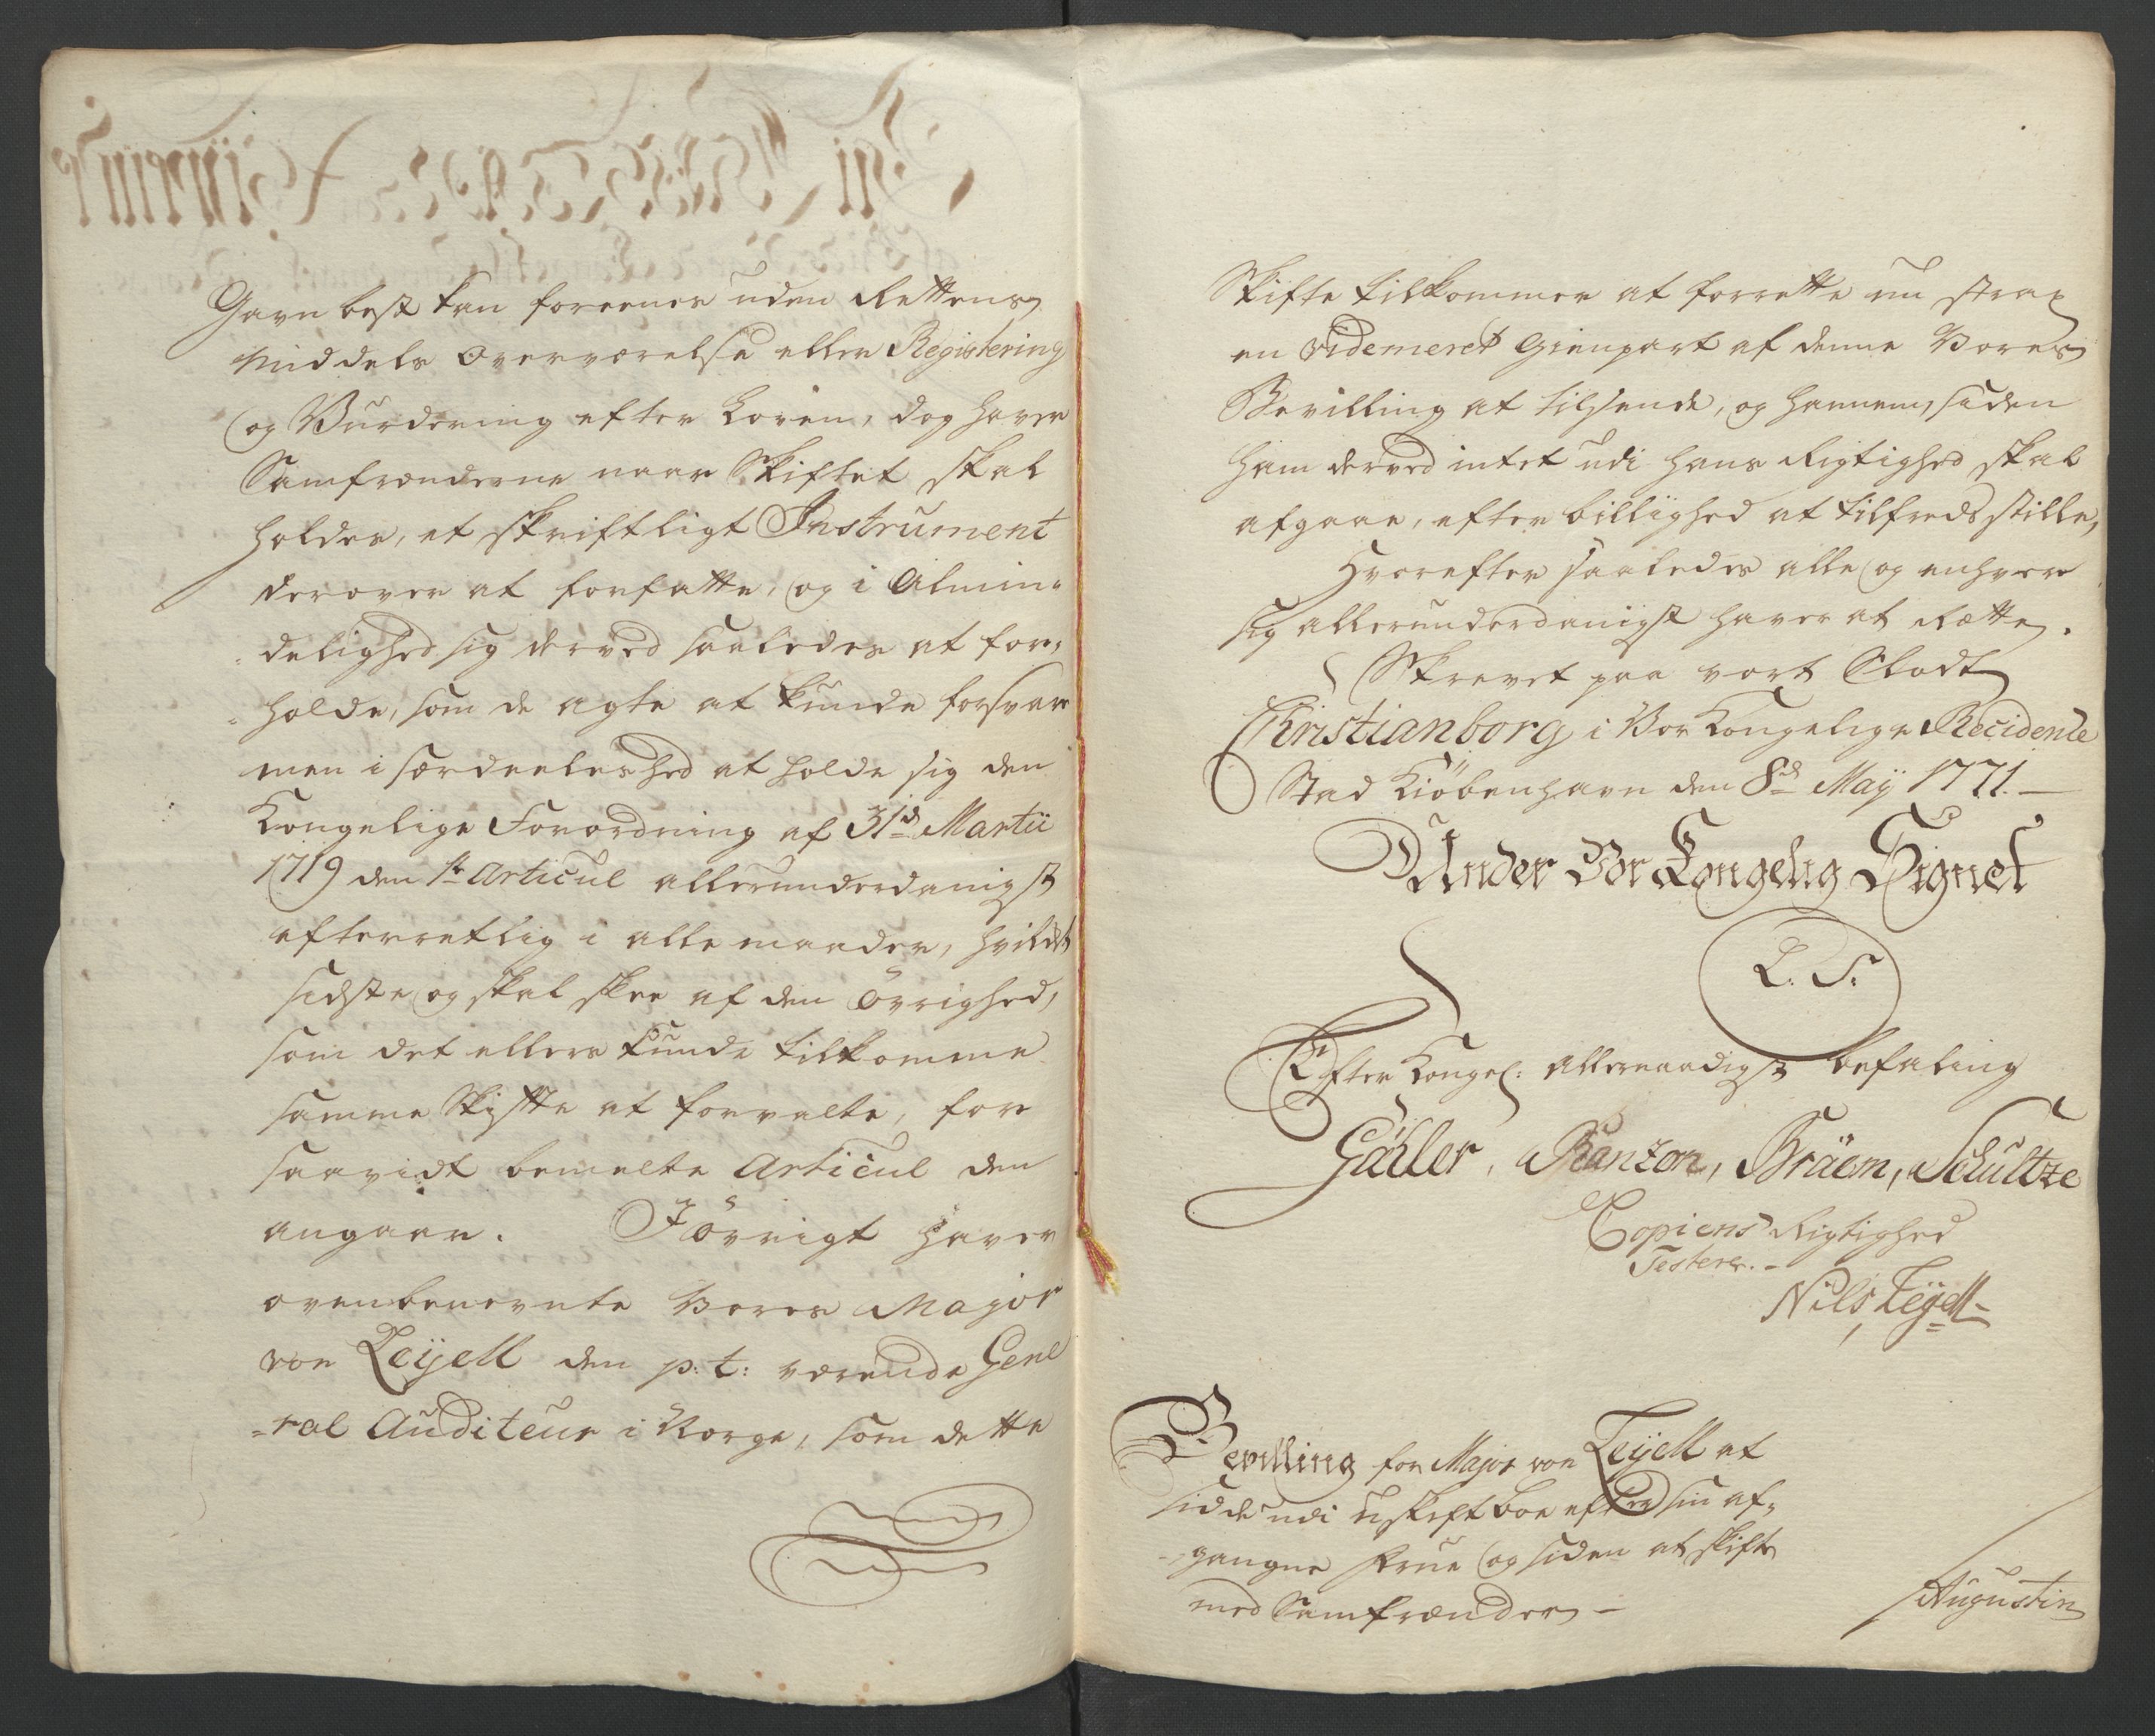 Gavn best kan foreenes uden Rettens
Middels Overværelse eller Registering
og Vurdering efter Loven, dog haver
Samfrænderne naar Skiftet skal
holdes, et skriftligt Instrument
derover at forfatte, og i Almin-
delighed sig derved saaledes at for-
holde, som de agte at kunde forsvare
men i særdeeleshed at holde sig den
Kongelige Forordning af 31d Martii
1719 den 1te Articul allerunderdanigst
efterretlig i alle maader, hvilket
sidste og skal skee af den Øvrighed,
som det ellers kunde tilkomme
samme Skiftte at forvalte, for
saavidt bemelte Articul den
angaaer. I øvrigt haver
ovenbenevnte Vores Major
von Leÿell den p: t: værende Gene
-ral Auditeur i Norge, som dette
Skifte tilkommer at forrette nu strax
en videmeret Gienpart af denne Vores
Bevilling at tilsende, og hannem, siden
ham derved intet udi hans Rigtighed skal
afgaae, efter billighed at tilfredsstille,
Hvorefter saaledes alle og enhver
sig allerunderdanigst haver at Rætte.
Skrevet paa vort Slodt
Christianborg i Vor Kongelige Recidence
Stad Kiöbenhavn den 8d Maÿ 1771.
Under Vor Kongelig Signet
L. S.
Efter Kongel: Allernaadigst befaling
Gähler, Ranzon, Bräem, Schultze
Copiens Rigtighed
Testerer.-
Nils Leÿell
Bevilling for Major von Leÿell at
sidde udi uskift boe efter sin af-
gangne Frue og siden at skifte
med Samfrænder
Augustin